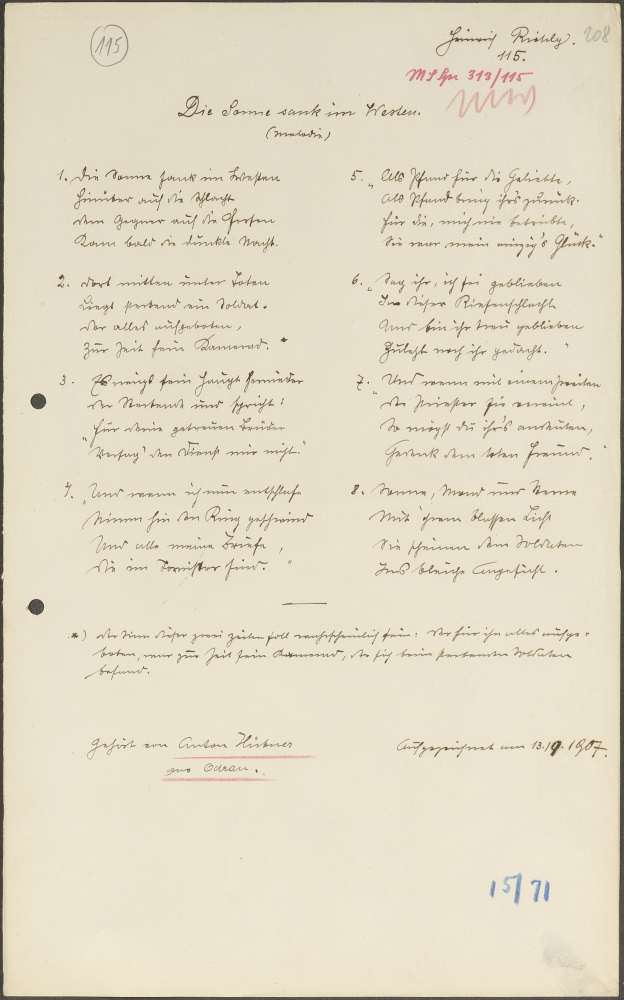 115
208
Heinrich Rietsch.
115.
313/115
Die Sonne sank im Westen.
(Melodie)
1. Die Sonne sank im Westen
Hinüber auf die Schlacht
Dem Gegner auf die Fersen
Kam bald die dunkle Nacht.
2. Dort mitten unter Toten
Liegt sterbend ein Soldat.
Der alles aufgeboten,
Zur Zeit sein Kamerad. *
3. Es neigt sein Haupt hernieder
Der Sterbende und spricht:
"Für deine getreuen Brüder
Versag' den Dienst mir nicht."
4. "Und wenn ich nun entschlafe
Nimm hin den Ring geschwind
Und alle meine Briefe,
Die im Tornister sind."
5. "Als Pfand für die Geliebte,
Als Pfand bring ihrs zurück.
Für die, mich nie betrübte,
Sie war mein einzig's Glück."
6. "Sag ihr, ich sei geblieben
In dieser Riesenschlacht
Und bin ihr treu geblieben
Zuletzt noch ihr gedacht."
7. "Und wenn mit einem zweiten
Der Priester sie vereint,
So mögst du ihr's andeuten,
Gedenk dem toten Freund."
8. Sonne, Mond und Sterne
Mit ihrem blassen Licht
Sie scheinen dem Soldaten
Ins bleiche Angesicht.
*) Der Sinn dieser zwei Zeilen soll wahrscheinlich sein: Der für ihn alles aufge-
boten, war zur Zeit sein Kamerad, der sich beim sterbenden Soldaten
befand.
Gehört von Anton Hübner
aus Odrau.
Aufgezeichnet am 13./9. 1907.
15/71